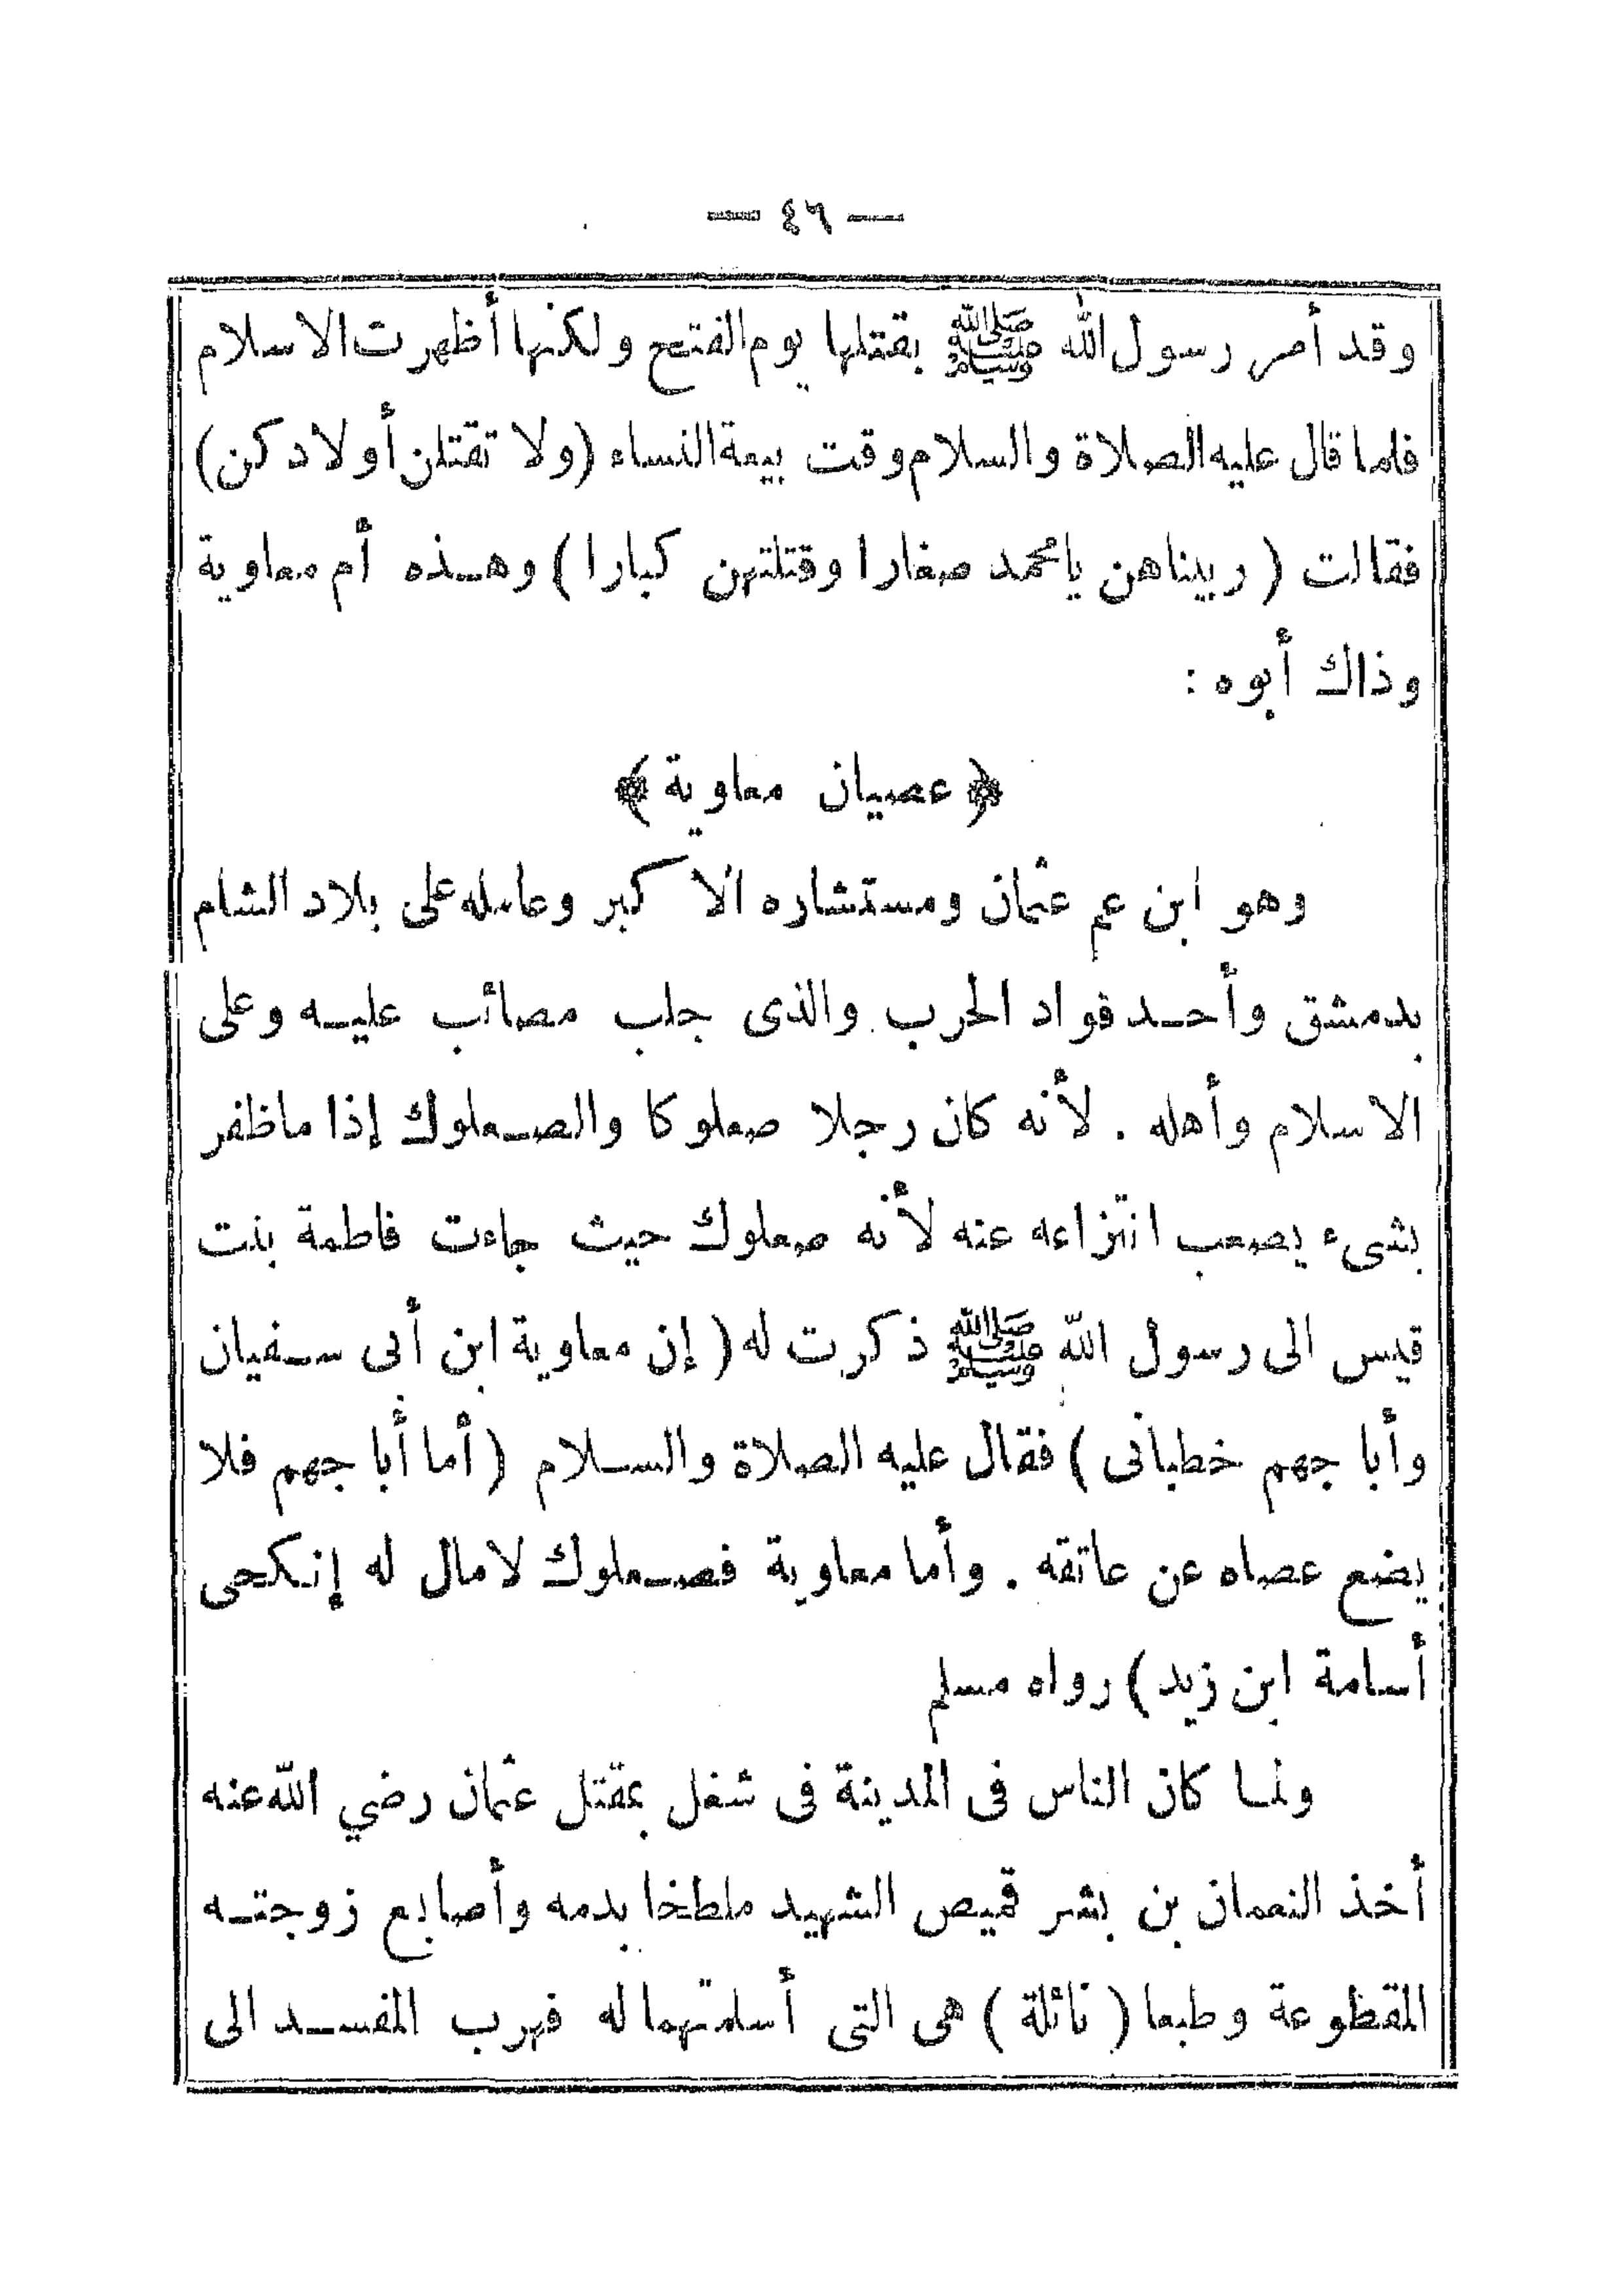 — ٤٦ —
وقد أمر رسول الله ﷺ بقتلها يوم الفتح ولكنها أظهرت الاسلام
فلما قال عليه الصلاة والسلام وقت بيعة النساء (ولا تقتلن أولادكن)
فقالت ( ربيناهن يا محمد صغارا وقتلتهن كبارا ) وهذه أم معاوية
وذاك أبوه :
﴿ عصيان معاوية ﴾
وهو ابن عم عثمان ومستشاره الاكبر وعامله على بلاد الشام
بدمشق وأحد قواد الحرب والذى جلب مصائب عليه وعلى
الاسلام وأهله . لأنه كان رجلا صعلوكا والصعلوك إذا ماظفر
بشىء يصعب انتزاعه عنه لأنه صعلوك حيث جاءت فاطمة بنت
قيس الى رسول الله ﷺ ذكرت له ( إن معاوية ابن أبى سفيان
وأبا جهم خطبانى ) فقال عليه الصلاة والسلام ( أما أبا جهم فلا
يضع عصاه عن عاتقه . وأما معاوية فصعلوك لامال له إنكحى
أسامة ابن زيد ) رواه مسلم
ولما كان الناس فى المدينة فى شغل بمقتل عثمان رضي الله عنه
أخذ النعمان بن بشر قميص الشهيد ملطخا بدمه وأصابع زوجته
المقظوعة وطبعا ( نائلة ) هى التى أسلمتهما له فهرب المفسد الى